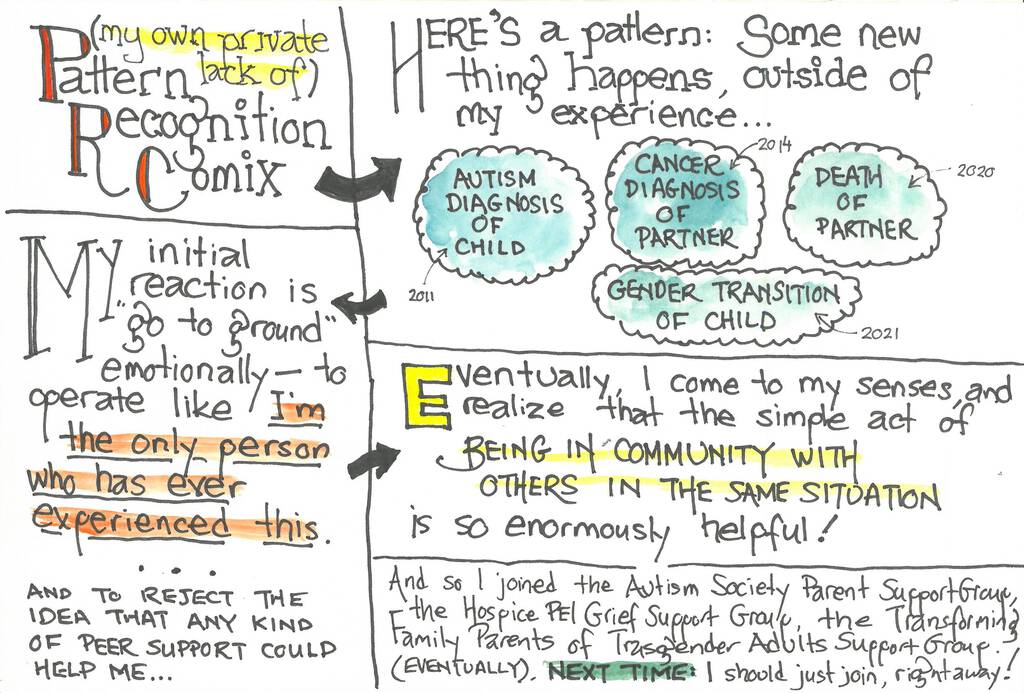 (my own private
lack of)
Pattern
Recognition
Comix
HERE'S a pattern: Some new
thing happens, outside of
my experience...
AUTISM
DIAGNOSIS
OF
CHILD
2011
CANCER
DIAGNOSIS
OF
PARTNER
2014
DEATH
OF
PARTNER
2020
GENDER TRANSITION
OF CHILD
2021
My initial
reaction is
"go to ground"
emotionally — to
operate like I'm
the only person
who has ever
experienced this.
....
AND TO REJECT THE
IDEA THAT ANY KIND
OF PEER SUPPORT COULD
HELP ME...
Eventually, I come to my senses, and
realize that the simple act of
BEING IN COMMUNITY WITH
OTHERS IN THE SAME SITUATION
is so enormously helpful!
And so I joined the Autism Society Parent Support Group,
the Hospice PEI Grief Support Group, the Transforming
Family Parents of Trasgender Adults Support Group.
(EVENTUALLY). NEXT TIME: I should just join, right away!